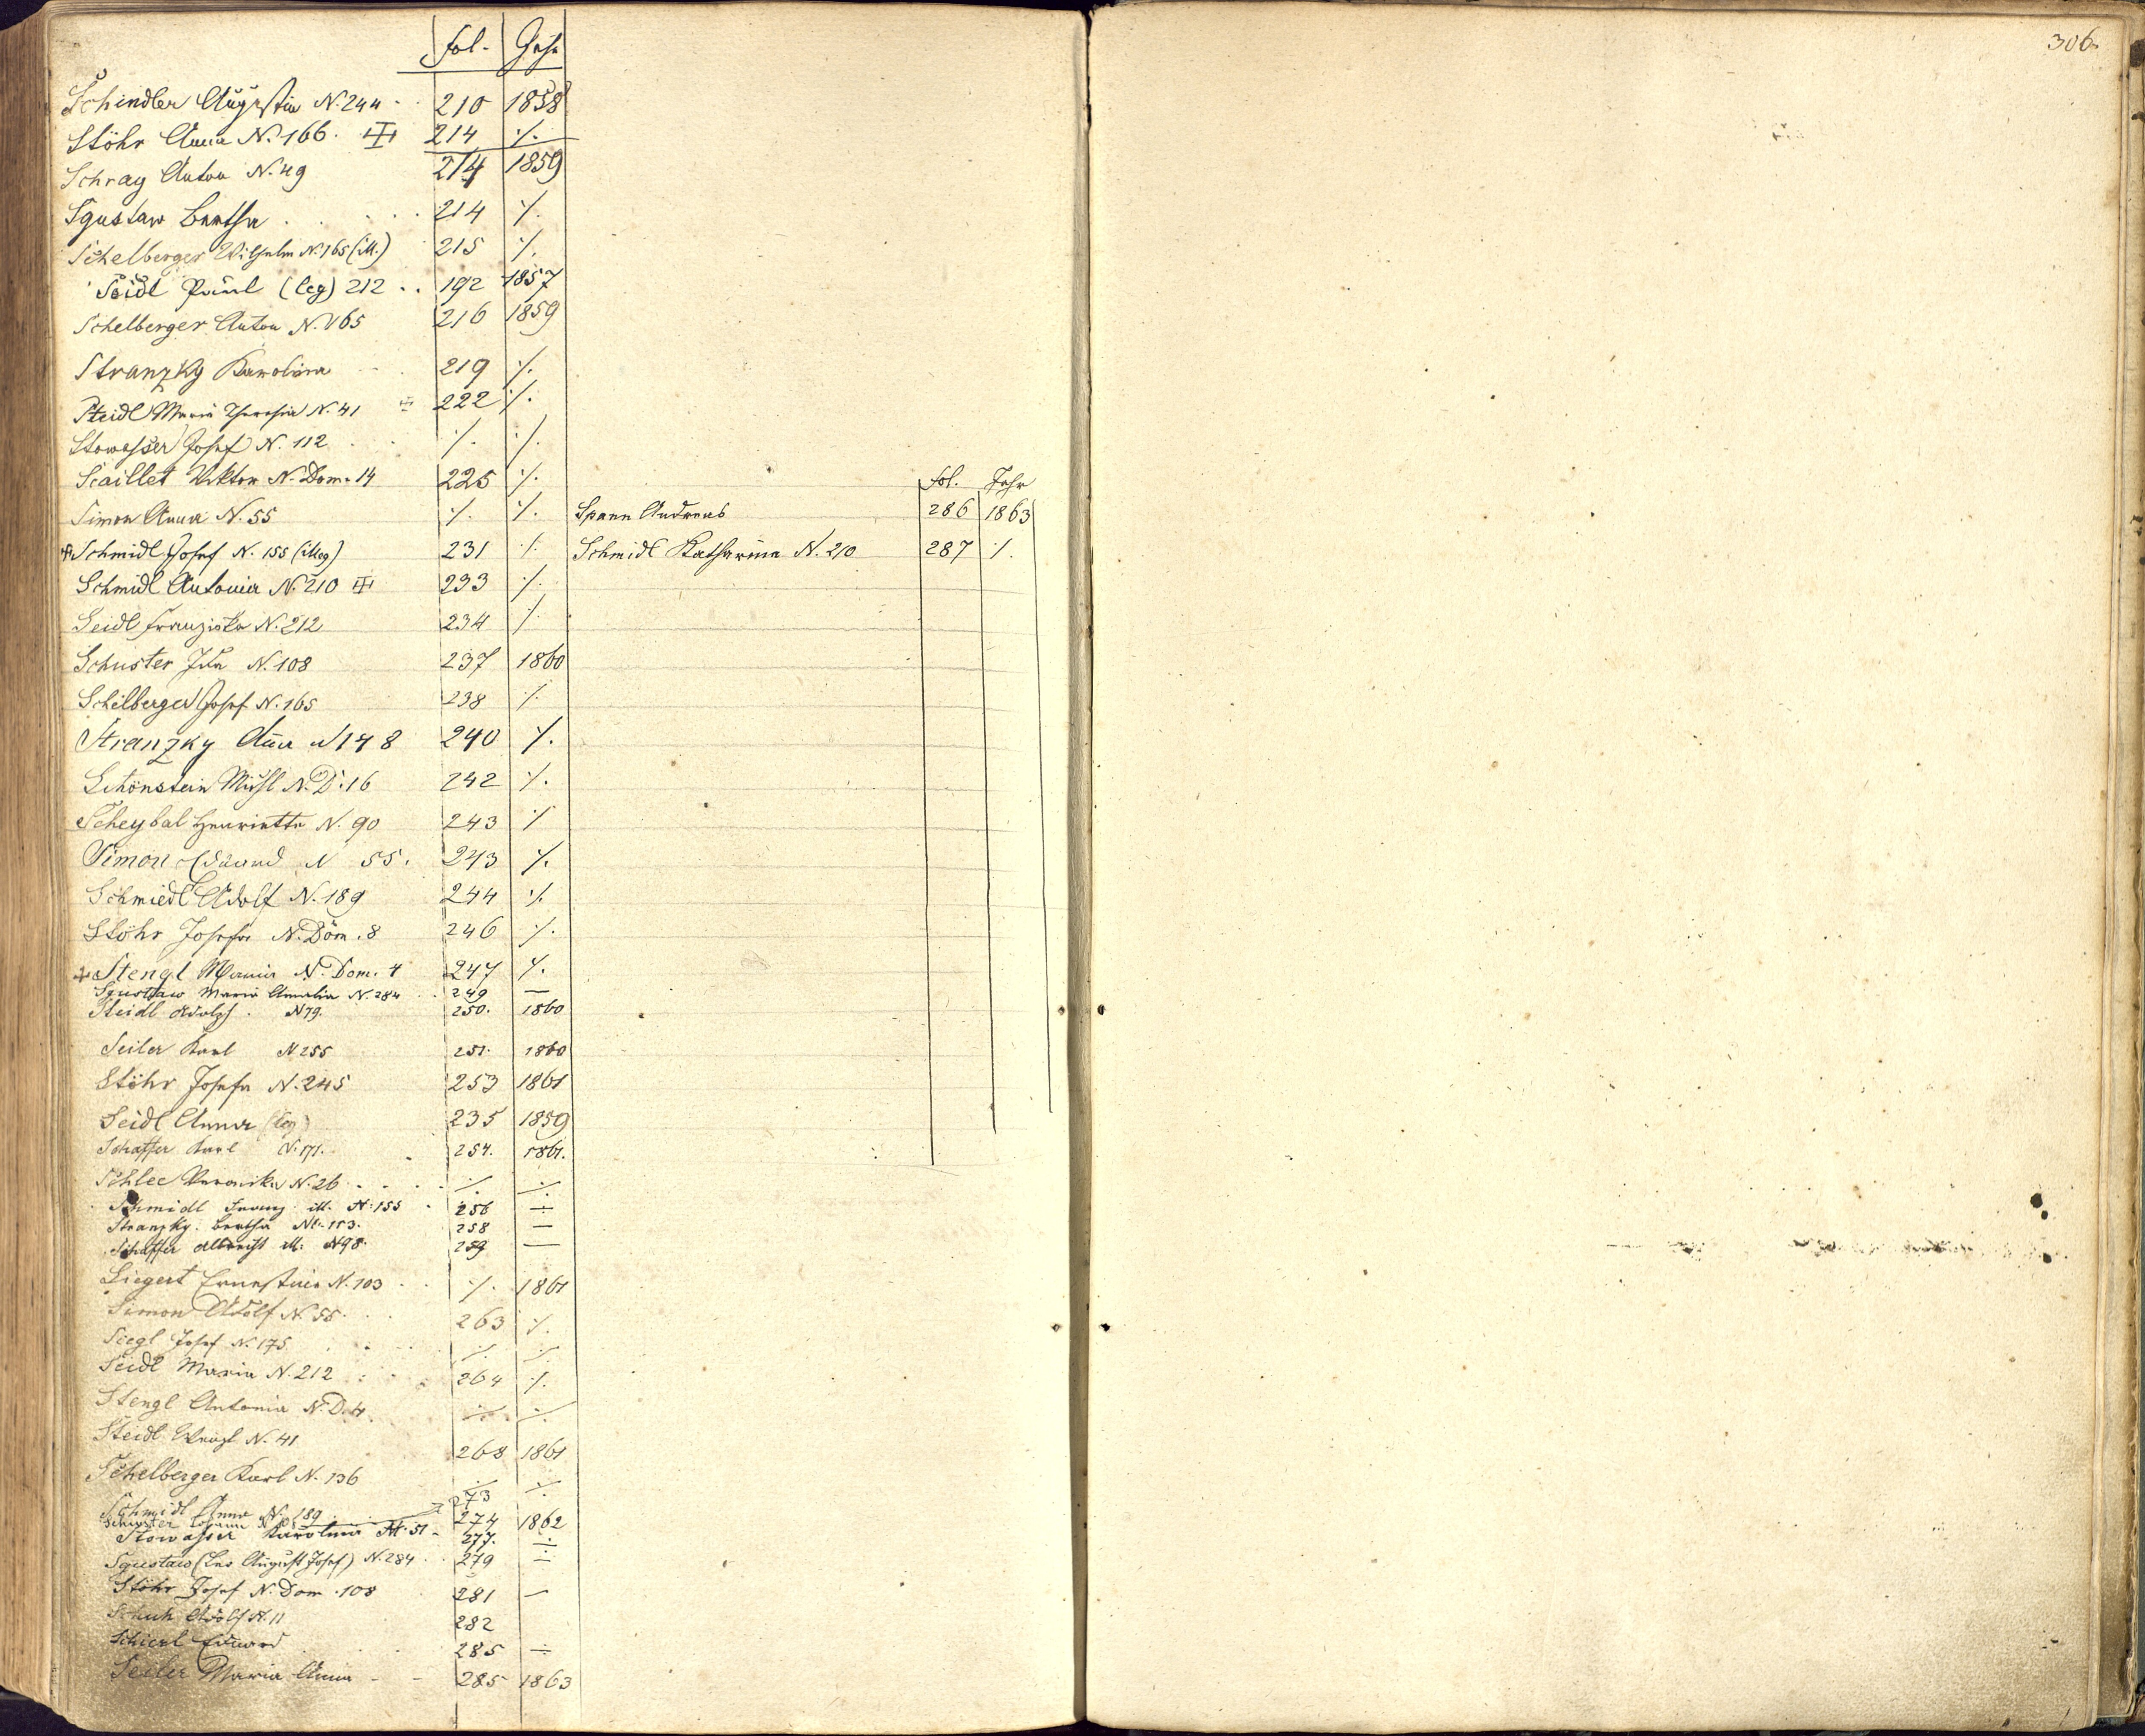 306.
fol. Jahr
Schindler Augustin N. 244 210 1858
Stöhr Anna N. 166. 214 ·/.
Schray Anton N. 49 214 1859
Sgustaw Bertha . . . . 214 ·/.
Schelberger Wilhelm N. 165 (ill.) 215 ·/.
Seidl Paul (leg) 212 . . 192 1857
Schelberger Anton N. 165 216 1859
Stranzky Karolina 219 ·/.
Steidl Maria Theresia N. 41 222 ·/.
Stowasser Josef N. 112 ·/. ·/.
Scaillet Viktor N. Dom. 14 225 ·/.
Simon Anna N. 55 ·/. ·/.
Schmidl Josef N. 155 (illeg) 231 ·/.
Schmidl Antonia N. 210 233 ·/.
Seidl Franziska N. 212 234 ·/.
Schuster Ida N. 108 237 1860
Schelberger Josef N. 165 238 ·/.
Stranzky Anna N 148 240 ·/.
Schönstein N. D. 16 242 ·/.
Scheybal Henriette N. 90 243 ·/.
Simon Eduard N 55. 243 ·/.
Schmiedl Adolf N. 189 244 ·/.
Stöhr Josefa N. Dom. 8 246 ·/.
Stengl Maria N. Dom. 4 247 ·/.
Sgustaw Maria Amalia N. 284 249 —
Steidl Adolph. N 79. 250. 1860
Seiler Karl N 255 251. 1860
Stöhr Josefa N. 245 253 1861
Seidl Anna (leg) 235 1859
Schaffer Karl N. 171. 254. 1861.
Schlee Veronika N. 26 . . . ·/. ·/.
Schmidl Franz ill. N. 155 256 ·/.
Stranzky Bertha N. 153. 258 —
Schaffer Albrecht ill. N 98. 259 —
Siegert Ernestine N. 103 . . ·/. 1861
Simon Adolf N. 55 . . . 263 ·/.
Siegl Josef N. 175 ·/. ·/.
Seidl Maria N. 212 264 ·/.
Stengl Antonia N. D. 4. ·/. ·/.
Steidl Wenzl N. 41 268 1861
Schelberger Karl N. 136 ·/. ·/.
Schmidl Anna N. 189 273
Schuster Johann 274 1862
Stowasser Karolina N. 51 277. ·/.
Sgustaw (Leo August Josef) N. 284 279 ·/.
Stöhr Josef N. Dom. 108 281 —
Schuh Adolf N. 11 282
Schierl Eduard 285 ·/.
Seiler Maria Anna - - 285 1863
fol. Jahr
Spann Andreas 286 1863
Schmidl Katharina N. 210 287 ·/.